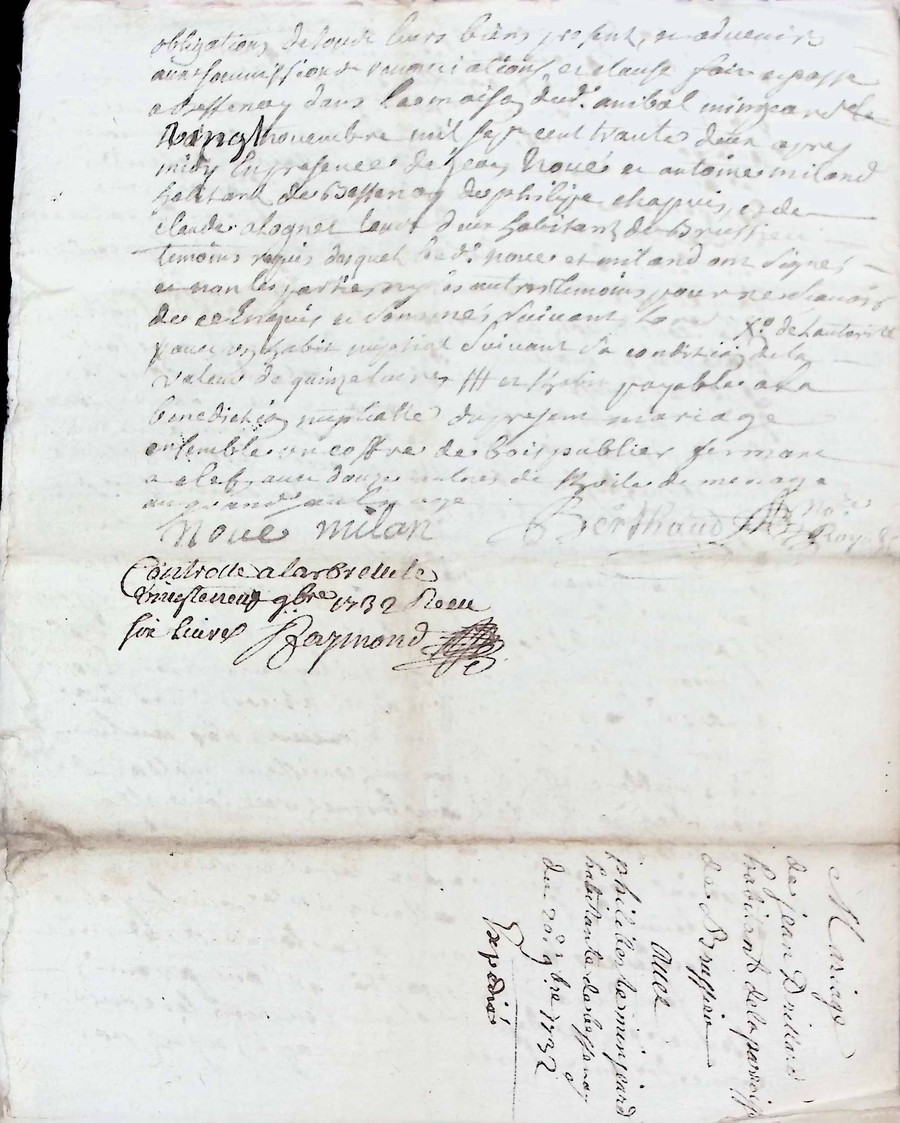 obligations de tout leurs biens present, et advenir
avec soumissions renonciations, et clause fait et passe
a Bessenay dans la maison dud. anibal minjeard le
vingt novembre mil sept cent trante deux apres
midy En presence de jean Noue et antoine miland
habitant de Bessenay de philipe chapuis, et de
claude alognet touts deux habitant de Brussieu
temoins requis desquel led. noue et miland ont signes
et non les parties ny les autres temoins pour ne sçavoir
de ce Enquis et sommés suivant
pour un habit nuptial suivant sa condition de la
valeur de quinze livres ttt et habit payable a la
benediction nuptialle du present mariage
ensemble un coffre de bois peublier fermant
a clef, avec douze aulnes de toile de menage
Noue milan Berthaud No.re Royal
Controllé a larbrelle le
vingt neuf 9bre 1732 Receu
six livres Raymond
Mariage
de jean Drillard
habitant de la paroisse
de Brussieu
avec
philiberte minjeard
habitante de bessenay
du 20e 9bre 1732
Expedié